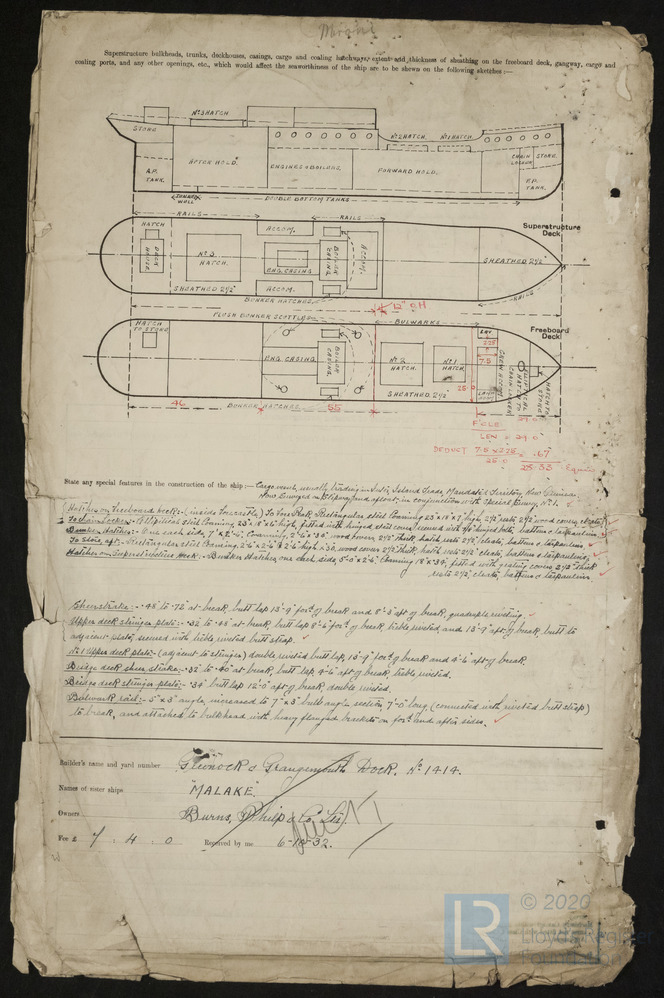 Superstructure bulkheads, trunks, deckhouses, casings, cargo and coaling hatchways, extent and thickness of sheathing on the freeboard deck, gangway, cargo and
coaling ports, and any other openings, etc., which would affect the seaworthiness of the ship are to be shewn on the following sketches :—
Nº3 HATCH
STORE
Nº2 HATCH. Nº1 HATCH.
CHAIN LOCKER STORE.
A.P. TANK.
AFTER HOLD.
ENGINES & BOILERS.
FORWARD HOLD.
F.P. TANK.
TUNNEL WELL
DOUBLE BOTTOM TANKS
RAILS
RAILS
HATCH
ACCOM.
Superstructure Deck
DECK HOUSE
Nº 3. HATCH.
ENG. CASING
BOILER CASING
ACCOM.
SHEATHED 2½"
SHEATHED 2½"
ACCOM.
RAILS
BUNKER HATCHES
12" OH
FLUSH BUNKER SCUTTLES
BULWARKS
HATCH TO STORE
Freeboard Deck
LAV
225
7.5
ENG. CASING
BOILER CASING
Nº 2 HATCH.
Nº 1 HATCH.
25.0
SHEATHED 2½"
CREW ACCOM
ELLIPTICAL HATCH TO CHAIN LOCKER
HATCH TO STORE
46
BUNKER HATCHES
55
29.0
F'CLE
LEN = 29.0
DEDUCT 7.5 x 225 = .67
25.0
28.33
State any special features in the construction of the ship :— Cargo vessel, usually trading in Inter Island Trade, Mandated Territory, New Guinea.
Now Surveyed on Slip and afloat, in conjunction with Special Survey, Nº 1.
Hatches on Freeboard Deck :- (inside Forecastle) To Fore Peak Rectangular steel Coaming 23" x 18" x 7" high, 2½" rests 2½" wood covers, cleats
To chain locker :- Elliptical steel Coaming 23" x 18" x 6" high, fitted with hinged steel cover
Bunker Hatches :- One each side, 7' x 2'-6", Coaming, 2'-6" x 30" wood covers 2½" thick, hatch rests 2½" cleats, battens & tarpaulins
To Store aft :- Rectangular steel Coaming, 2'-6" x 2'-6" x 2'-6" high x 30, wood covers 2½" thick, hatch rests 2½" cleats, battens & tarpaulins
Hatches on Superstructure Deck :- Bunker Hatches one each side, 5'-0" x 2'-6", Coaming 18" x 34, fitted with grating covers 2½" thick
rests 2½" cleats, battens & tarpaulins.
Sheerstrake :- .48 to .72 at break, butt lap 13'-9" forᵈ of break and 8'-3" aft of break, quadruple riveting.
Upper deck stringer plate :- .32 to .48 at break, butt lap 8'-6" forᵈ of break, treble riveted and 13'-9" aft of break, butt to
adjacent plate, secured with treble riveted butt strap.
Nº 1 Upper deck plate (adjacent to stringer) double riveted butt lap, 13'-9" forᵈ of break and 4'-6" aft of break.
Bridge deck sheer strake :- .32 to .40 at break, butt lap 4'-6" aft of break, treble riveted.
Bridge deck stringer plate :- .34 butt lap 12'-0" aft of break, double riveted.
Bulwark rail :- 5" x 3" angle, increased to 7" x 3" bulb angle section 7'-0" long (connected with riveted butt strap)
to break, and attached to bulkhead with heavy flanged brackets on forᵈ and after sides.
Builder's name and yard number Greenock & Grangemouth Dock. Nº 1414.
Names of sister ships "MALAKE"
Owners Burns, Philp & Co. Ltd
Fee £ 7 : 4 : 0 Received by me 6-10-32.
LR
© 2020
Lloyd's Register
Foundation